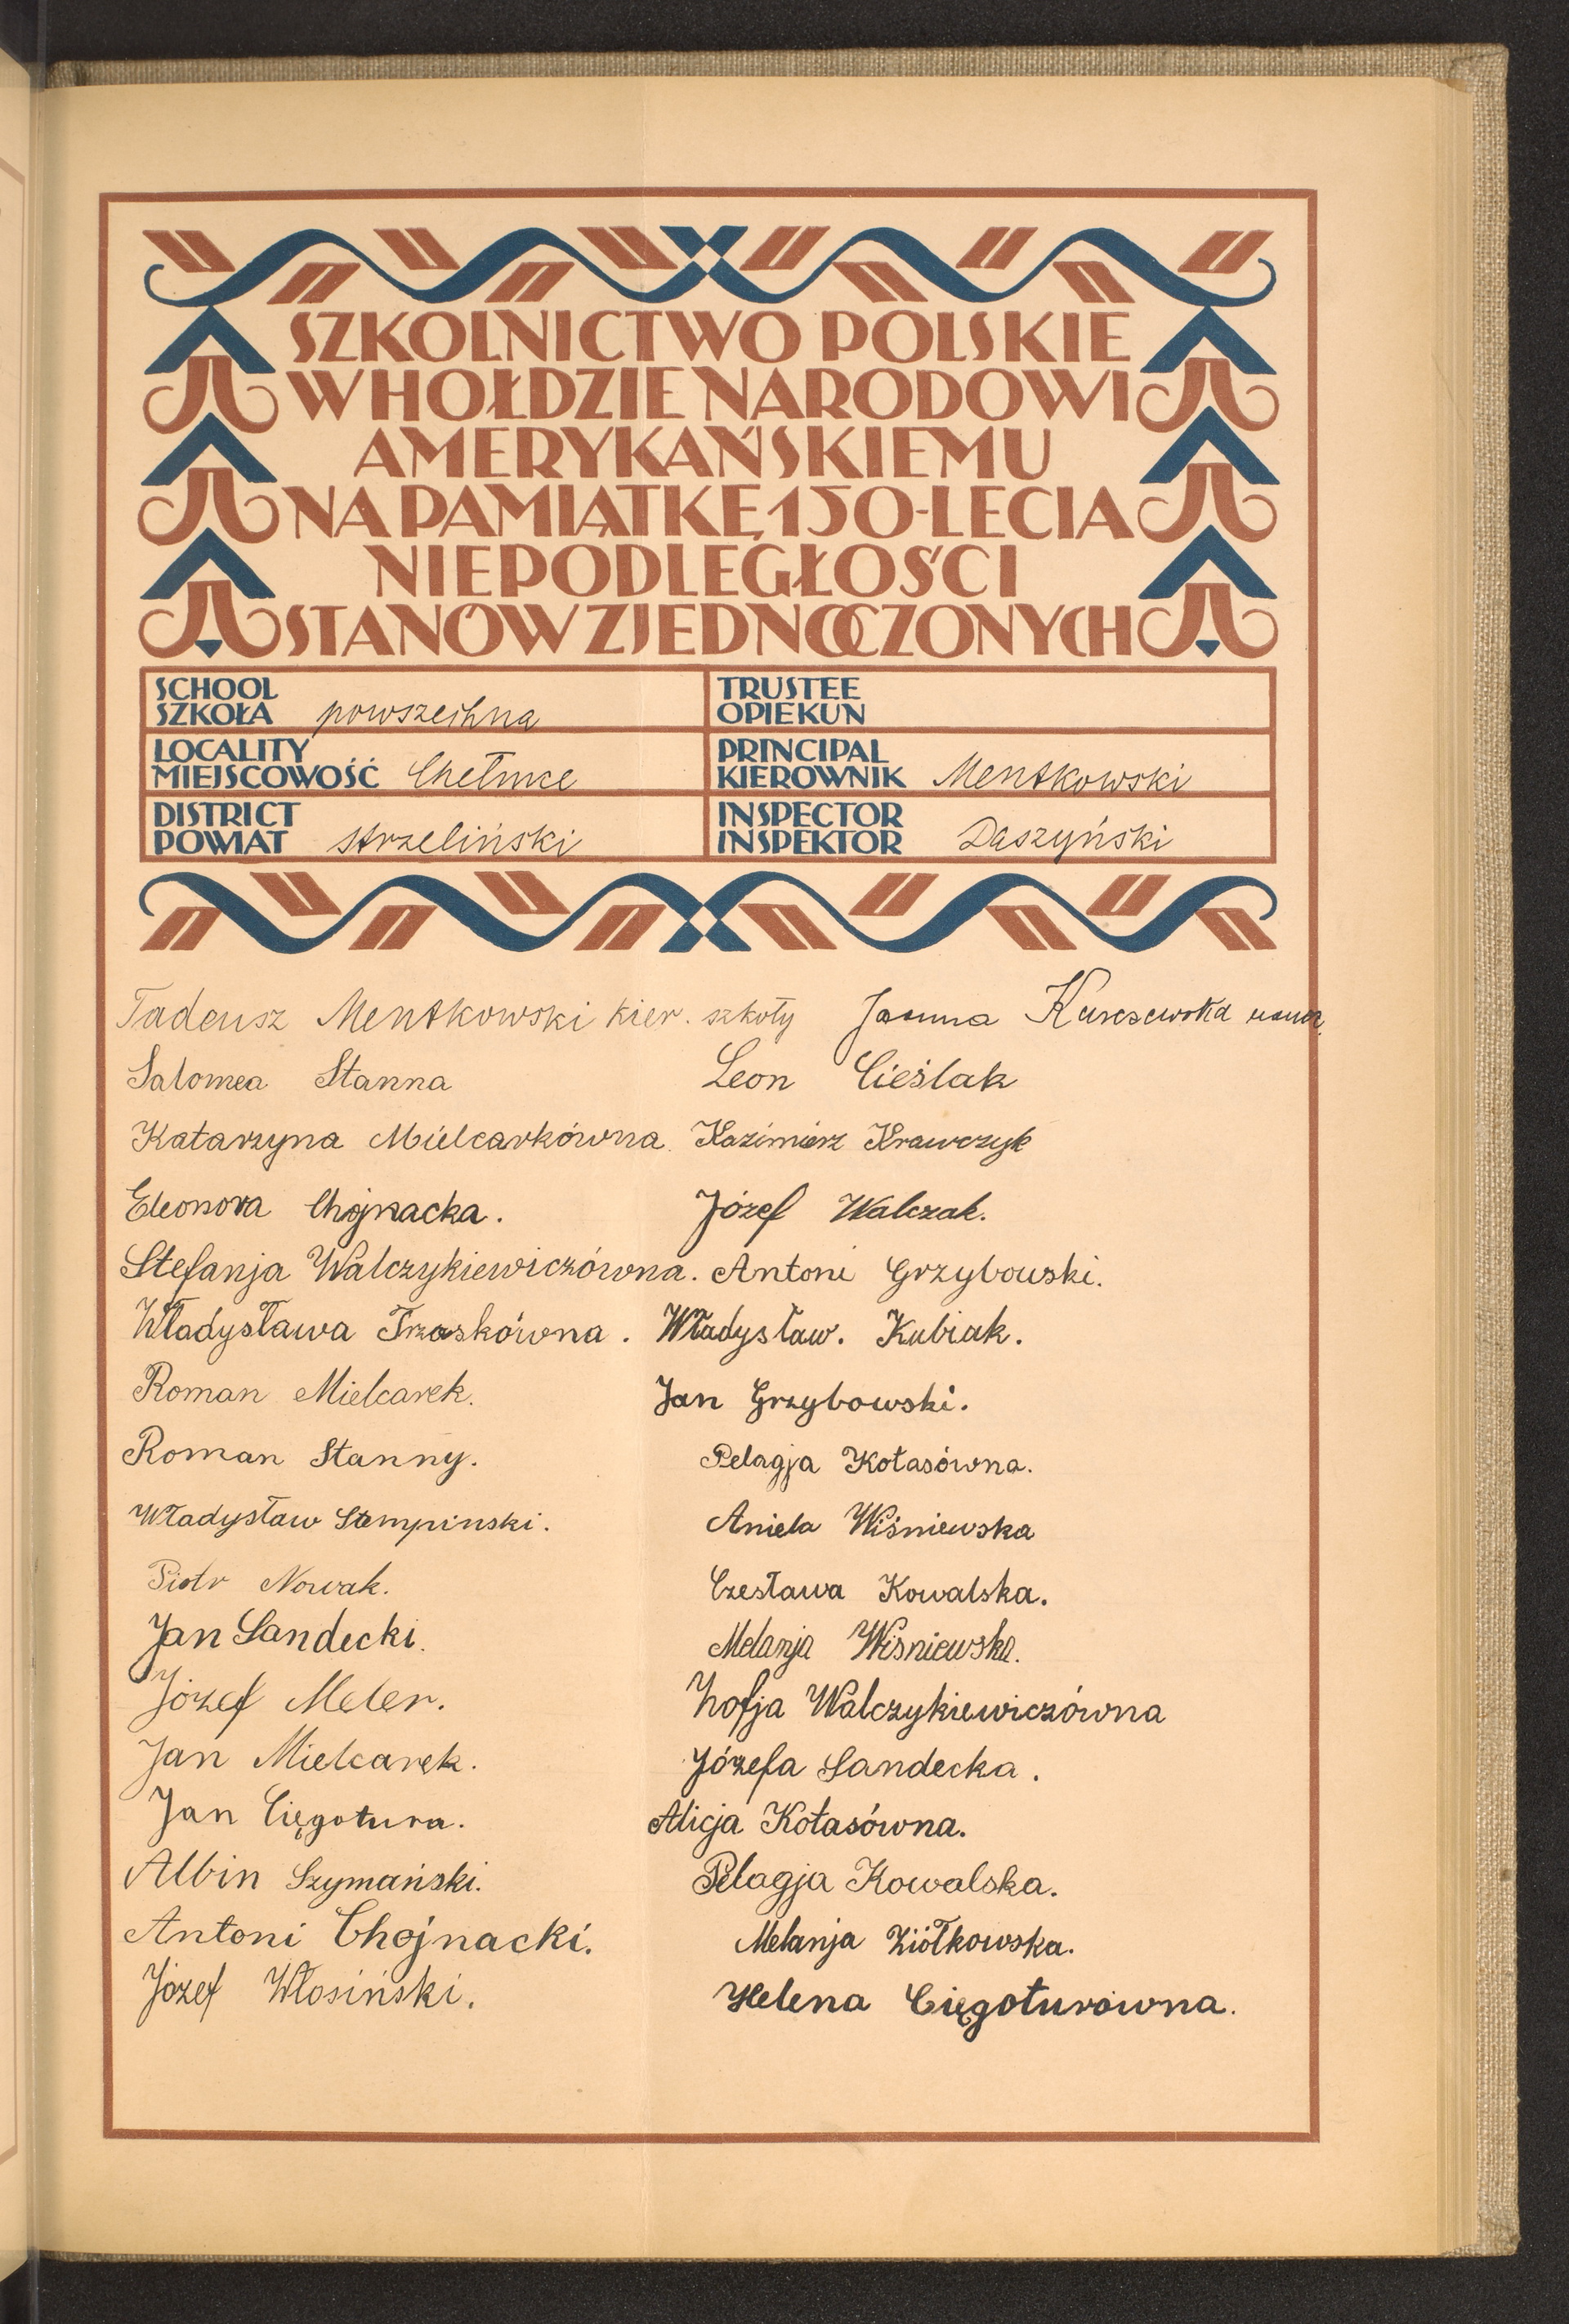 SZKOLNICTWO POLSKIE
W HOŁDZIE NARODOWI
AMERYKAŃSKIEMU
NA PAMIĄTKĘ 150-LECIA
NIEPODLEGŁOŚCI
STANÓW ZJEDNOCZONYCH
SCHOOL
SZKOŁA powszechna
TRUSTEE
OPIEKUN
LOCALITY
MIEJSCOWOŚĆ Chełmce
PRINCIPAL
KIEROWNIK Mentkowski
DISTRICT
POWIAT strzeliński
INSPECTOR
INSPEKTOR Daszyński
Tadeusz Mentkowski kier. szkoły
Salomea Stanna
Katarzyna Mielcarkówna.
Eleonora Chojnacka.
Stefanja Walczykiewiczówna.
Władysława Trzaskówna.
Roman Mielcarek.
Roman Stanny.
Władysław Stempinski.
Piotr Nowak.
Jan Sandecki.
Józef Meler.
Jan Mielcarek.
Jan Cięgotura.
Albin Szymański.
Antoni Chojnacki.
Józef Włosiński.
Janina
Leon Cieślak
Kazimierz Krawczyk
Józef Walczak.
Antoni Grzybowski.
Władysław. Kubiak.
Jan Grzybowski.
Pelagja Kotasówna.
Aniela Wiśniewska
Czesława Kowalska.
Melanja Wiśniewska.
Zofja Walczykiewiczówna
Józefa Sandecka.
Alicja Kotasówna.
Pelagja Kowalska.
Melanja Ziółkowska.
Helena Cięgoturówna.